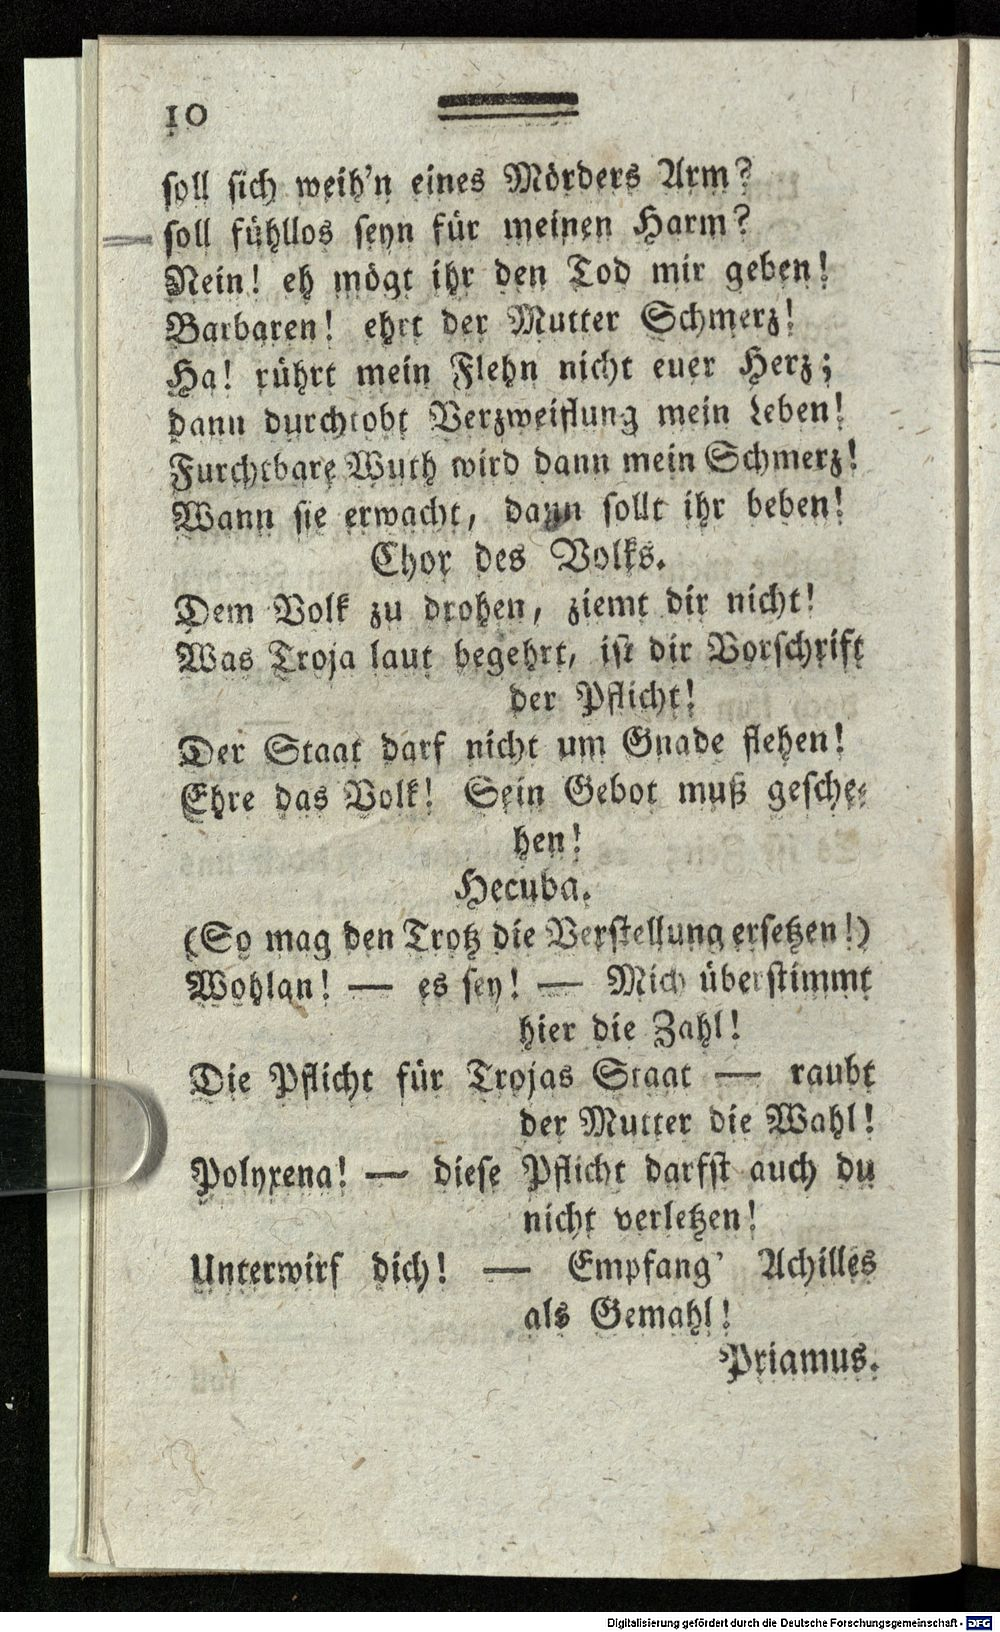 10
soll sich weih'n eines Mörders Arm?
soll fühllos seyn für meinen Harm?
Nein! eh mögt ihr den Tod mir geben!
Barbaren! ehrt der Mutter Schmerz!
Ha! rührt mein Flehn nicht euer Herz;
dann durchtobt Verzweiflung mein Leben!
Furchtbare Wuth wird dann mein Schmerz!
Wann sie erwacht, dann sollt ihr beben!
Chor des Volks.
Dem Volk zu drohen, ziemt dir nicht!
Was Troja laut begehrt, ist dir Vorschrift
der Pflicht!
Der Staat darf nicht um Gnade flehen!
Ehre das Volk! Sein Gebot muß gesche-
hen!
Hecuba.
(So mag den Trotz die Verstellung ersetzen!)
Wohlan! — es sey! — Mich überstimmt
hier die Zahl!
Die Pflicht für Trojas Staat — raubt
der Mutter die Wahl!
Polyxena! — diese Pflicht darfst auch du
nicht verletzen!
Unterwirf dich! — Empfang' Achilles
als Gemahl!
Priamus.
Digitalisierung gefördert durch die Deutsche Forschungsgemeinschaft - DFG